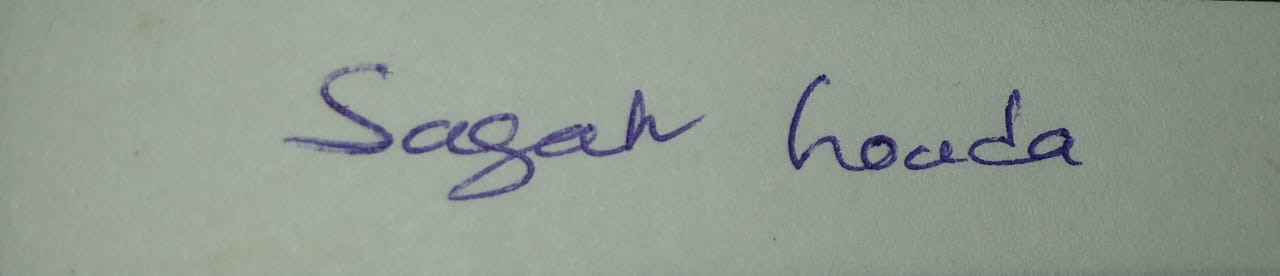 Sagar houda